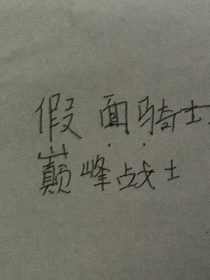 假面骑士
巅峰战士